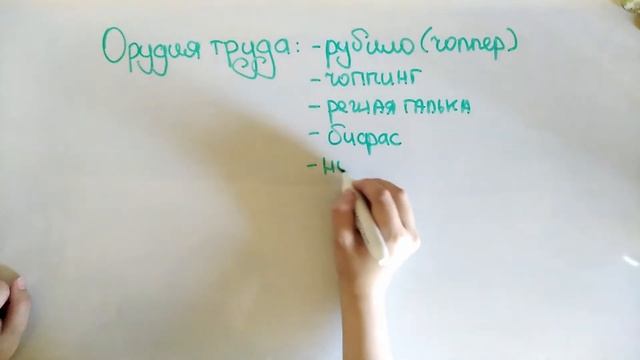 Орудия труда: - рубило (чоппер)
- чоппинг
- речная галька
- бифас
- н